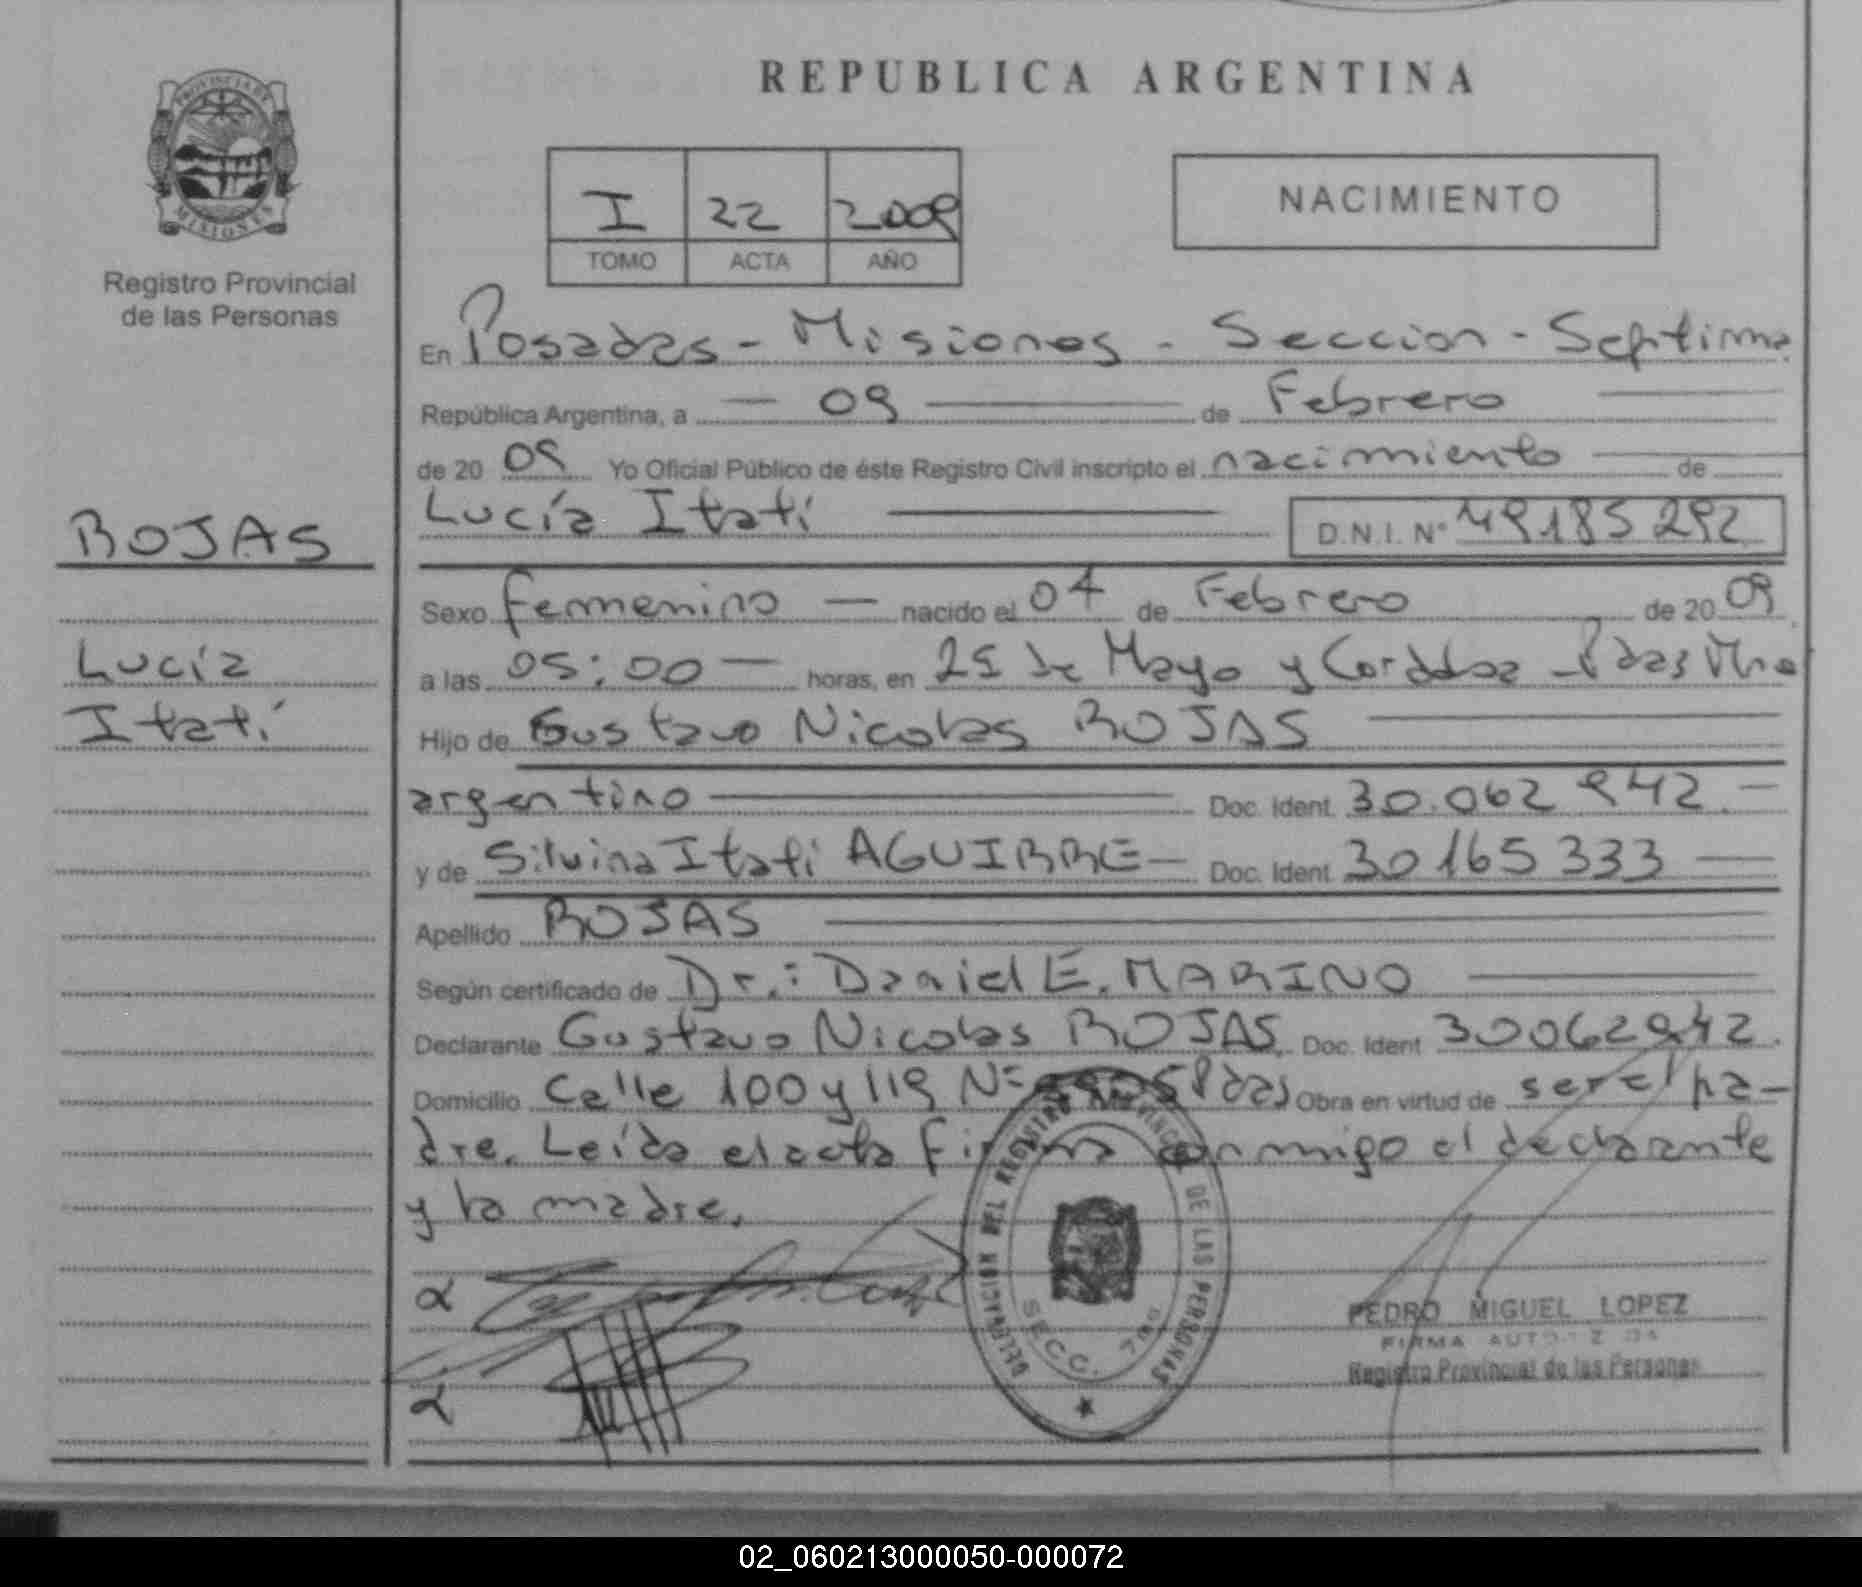 PROVINCIA DE
MISIONES
Registro Provincial
de las Personas
ROJAS
Lucía
Itatí
REPUBLICA ARGENTINA
I 22 2009
TOMO ACTA AÑO
NACIMIENTO
En Posadas - Misiones - Seccion - Septima
República Argentina, a - 09 - de Febrero
de 20 09 Yo Oficial Público de éste Registro Civil inscripto el nacimiento de
Lucía Itatí D.N.I. Nº 49185292
Sexo femenino - nacido el 04 de Febrero de 20 09
a las 05:00 - horas, en 25 de Mayo y Cordoba - Pdas
Hijo de Gustavo Nicolas ROJAS
argentino Doc. Ident. 30.062 942.-
y de Silvina Itatí AGUIRRE - Doc. Ident. 30165333
Apellido ROJAS
Según certificado de Dr.: Daniel E. MARINO
Declarante Gustavo Nicolas ROJAS Doc. Ident 30062942.
Domicilio Calle 100 y 119 Nº Pdas Obra en virtud de ser el pa-
dre. Leída el acta firma conmigo el declarante
y la madre.
DELEGACION DEL REGISTRO PROVINCIAL DE LAS PERSONAS
SECC. 7ma
PEDRO MIGUEL LOPEZ
FIRMA AUTORIZADA
Registro Provincial de las Personas
02_060213000050-000072